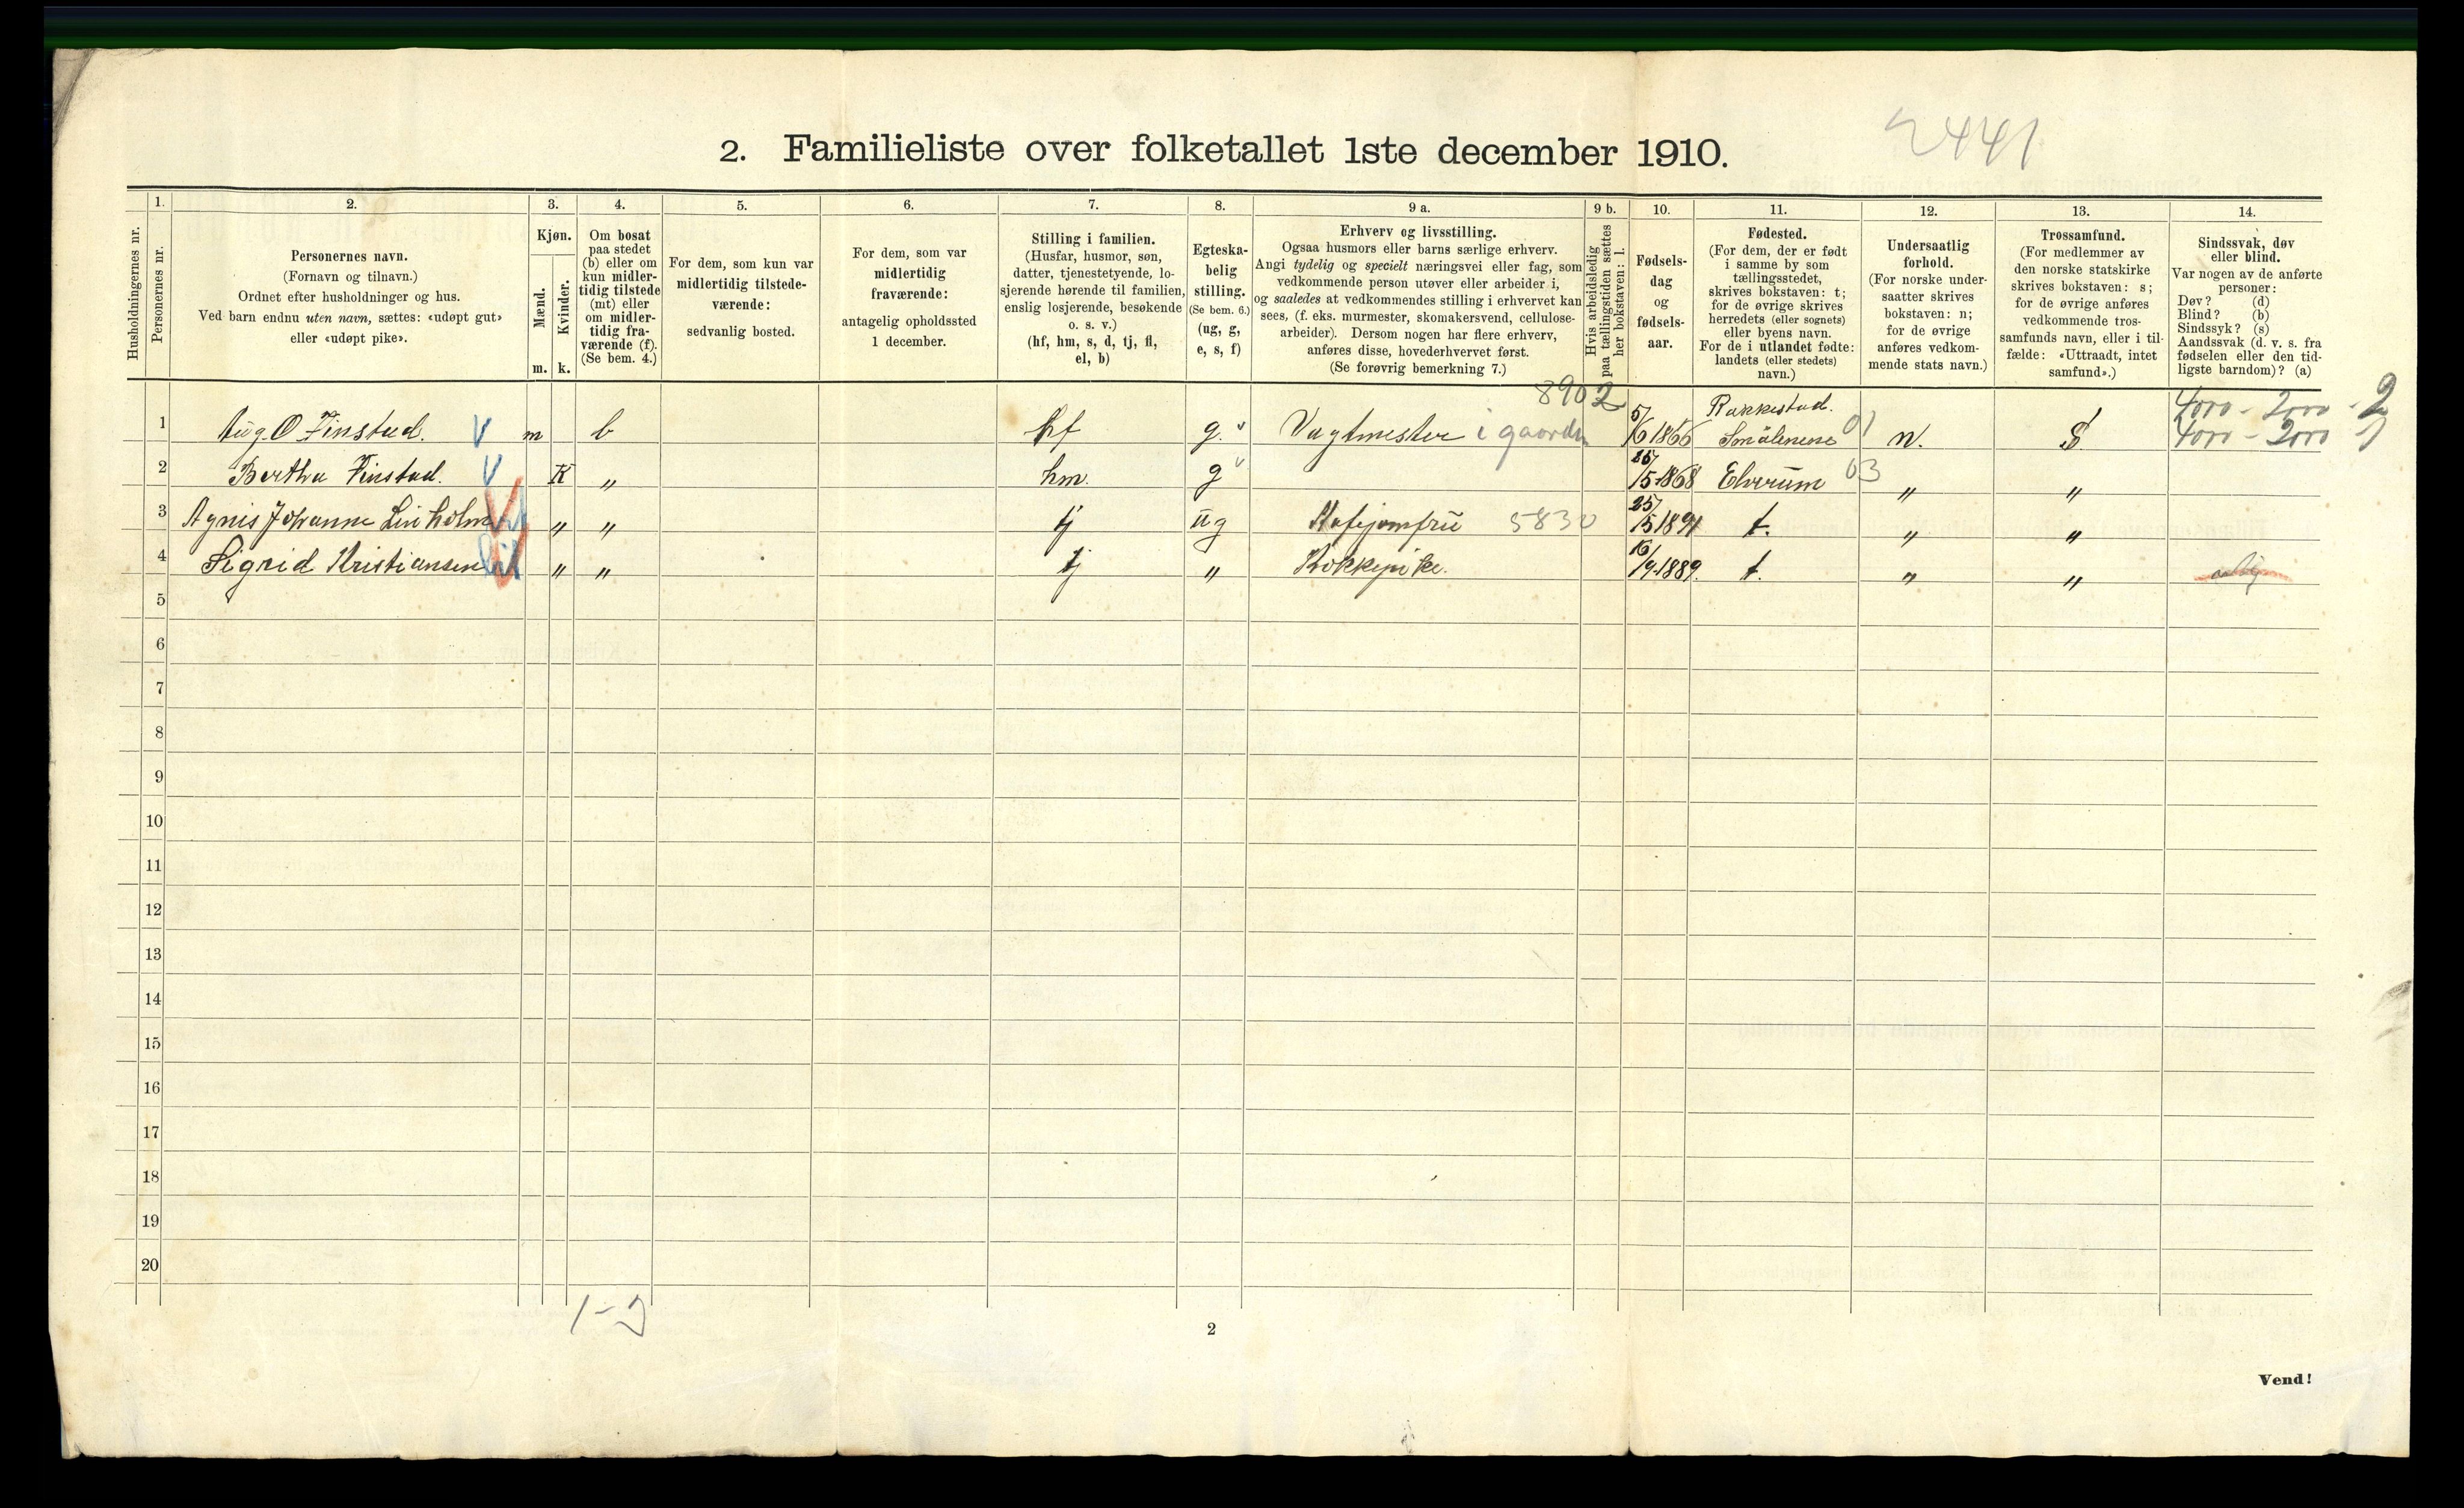 2441
2. Familieliste over folketallet 1ste december 1910.
Husholdningernes nr.
1.
Personernes nr.
2.
Personernes navn.
(Fornavn og tilnavn.)
Ordnet efter husholdninger og hus.
Ved barn endnu uten navn, sættes: «udøpt gut»
eller «udøpt pike».
3.
Kjøn.
Mænd.
Kvinder.
m. k.
4.
Om bosat
paa stedet
(b) eller om
kun midler-
tidig tilstede
(mt) eller
om midler-
tidig fra-
værende (f).
(Se bem. 4.)
5.
For dem, som kun var
midlertidig tilstede-
værende:
sedvanlig bosted.
6.
For dem, som var
midlertidig
fraværende:
antagelig opholdssted
1 december.
7.
Stilling i familien.
(Husfar, husmor, søn,
datter, tjenestetyende, lo-
sjerende hørende til familien,
enslig losjerende, besøkende
o. s. v.)
(hf, hm, s, d, tj, fl,
el, b)
8.
Egteska-
belig
stilling.
(Se bem. 6.)
(ug, g,
e, s, f)
9 a.
Erhverv og livsstilling.
Ogsaa husmors eller barns særlige erhverv.
Angi tydelig og specielt næringsvei eller fag, som
vedkommende person utøver eller arbeider i,
og saaledes at vedkommendes stilling i erhvervet kan
sees, (f. eks. murmester, skomakersvend, cellulose-
arbeider). Dersom nogen har flere erhverv,
anføres disse, hovederhvervet først.
(Se forøvrig bemerkning 7.)
9 b.
Hvis arbeidsledig
paa tællingstiden sættes
her bokstaven: l.
10.
Fødsels-
dag
og
fødsels-
aar.
11.
Fødested.
(For dem, der er født
i samme by som
tællingsstedet,
skrives bokstaven: t;
for de øvrige skrives
herredets (eller sognets)
eller byens navn.
For de i utlandet fødte:
landets (eller stedets)
navn.)
12.
Undersaatlig
forhold.
(For norske under-
saatter skrives
bokstaven: n;
for de øvrige
anføres vedkom-
mende stats navn.)
13.
Trossamfund.
(For medlemmer av
den norske statskirke
skrives bokstaven: s;
for de øvrige anføres
vedkommende tros-
samfunds navn, eller i til-
fælde: «Uttraadt, intet
samfund».)
14.
Sindssvak, døv
eller blind.
Var nogen av de anførte
personer:
Døv? (d)
Blind? (b)
Sindssyk? (s)
Aandssvak (d. v. s. fra
fødselen eller den tid-
ligste barndom)? (a)
8902 Rakkestad. 4000 - 2000 - 2
1 Aug. O Finstad. V m b hf g. v Vagtmester i gaarden 5/6 1866 Smålenene 01 n. S. 4000 - 2000 1
2 Bertha Finstad. V K „ hm. g v 15/5 1868 Elverum 03 „ „
3 Agnis Johanne „ „ tj ug Kafejomfru 5830 25/5 1891 t. „ „
4 Sigrid Kristiansen „ „ tj „ Kokkepike. 16/9 1889. t. „ „
5
6
7
8
9
10
11
12
13
14
15
16
17
18
19
20
2
Vend!